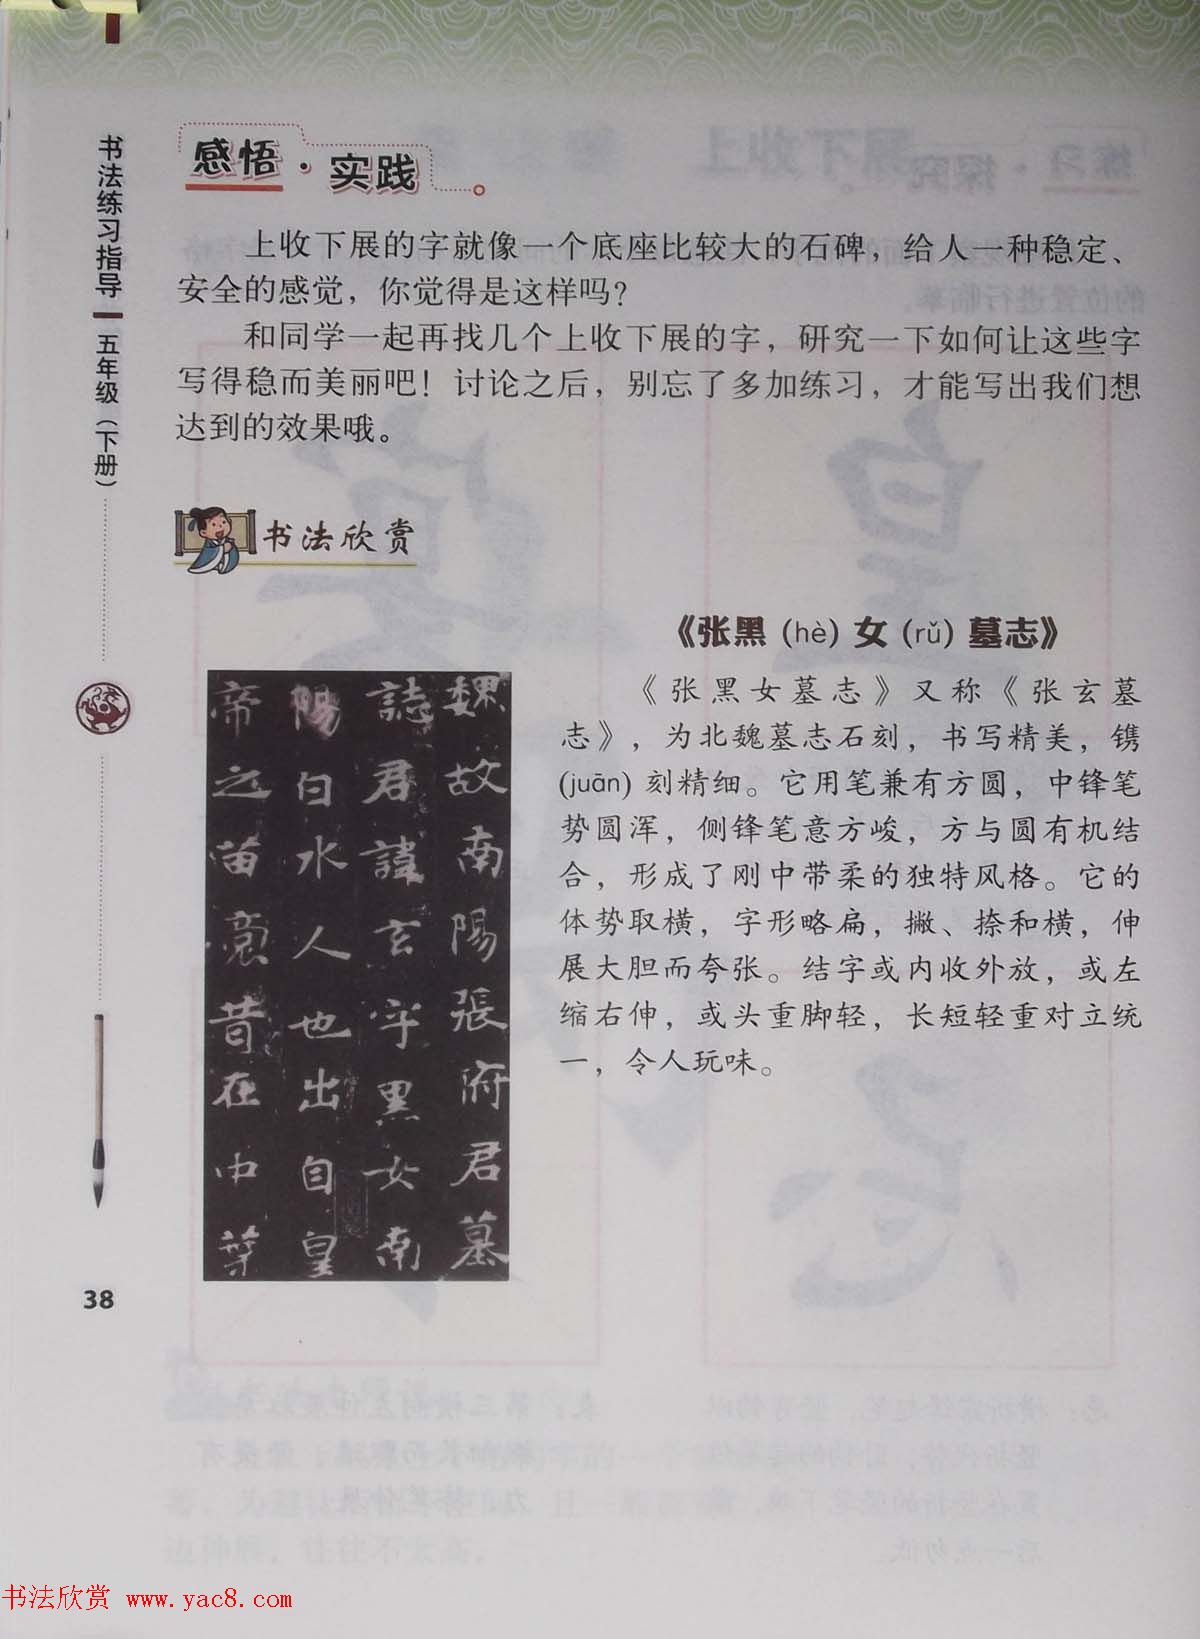 书法练习指导 五年级（下册）
感悟·实践
上收下展的字就像一个底座比较大的石碑，给人一种稳定、
安全的感觉，你觉得是这样吗？
和同学一起再找几个上收下展的字，研究一下如何让这些字
写得稳而美丽吧！讨论之后，别忘了多加练习，才能写出我们想
达到的效果哦。
书法欣赏
《张黑 (hè) 女 (rǔ) 墓志》
《张黑女墓志》又称《张玄墓
志》，为北魏墓志石刻，书写精美，镌
(juān) 刻精细。它用笔兼有方圆，中锋笔
势圆浑，侧锋笔意方峻，方与圆有机结
合，形成了刚中带柔的独特风格。它的
体势取横，字形略扁，撇、捺和横，伸
展大胆而夸张。结字或内收外放，或左
缩右伸，或头重脚轻，长短轻重对立统
一，令人玩味。
魏故南陽張府君墓
誌君諱玄字黑女南
陽白水人也出自皇
帝之苗裔昔在中葉
38
书法欣赏 www.yac8.com